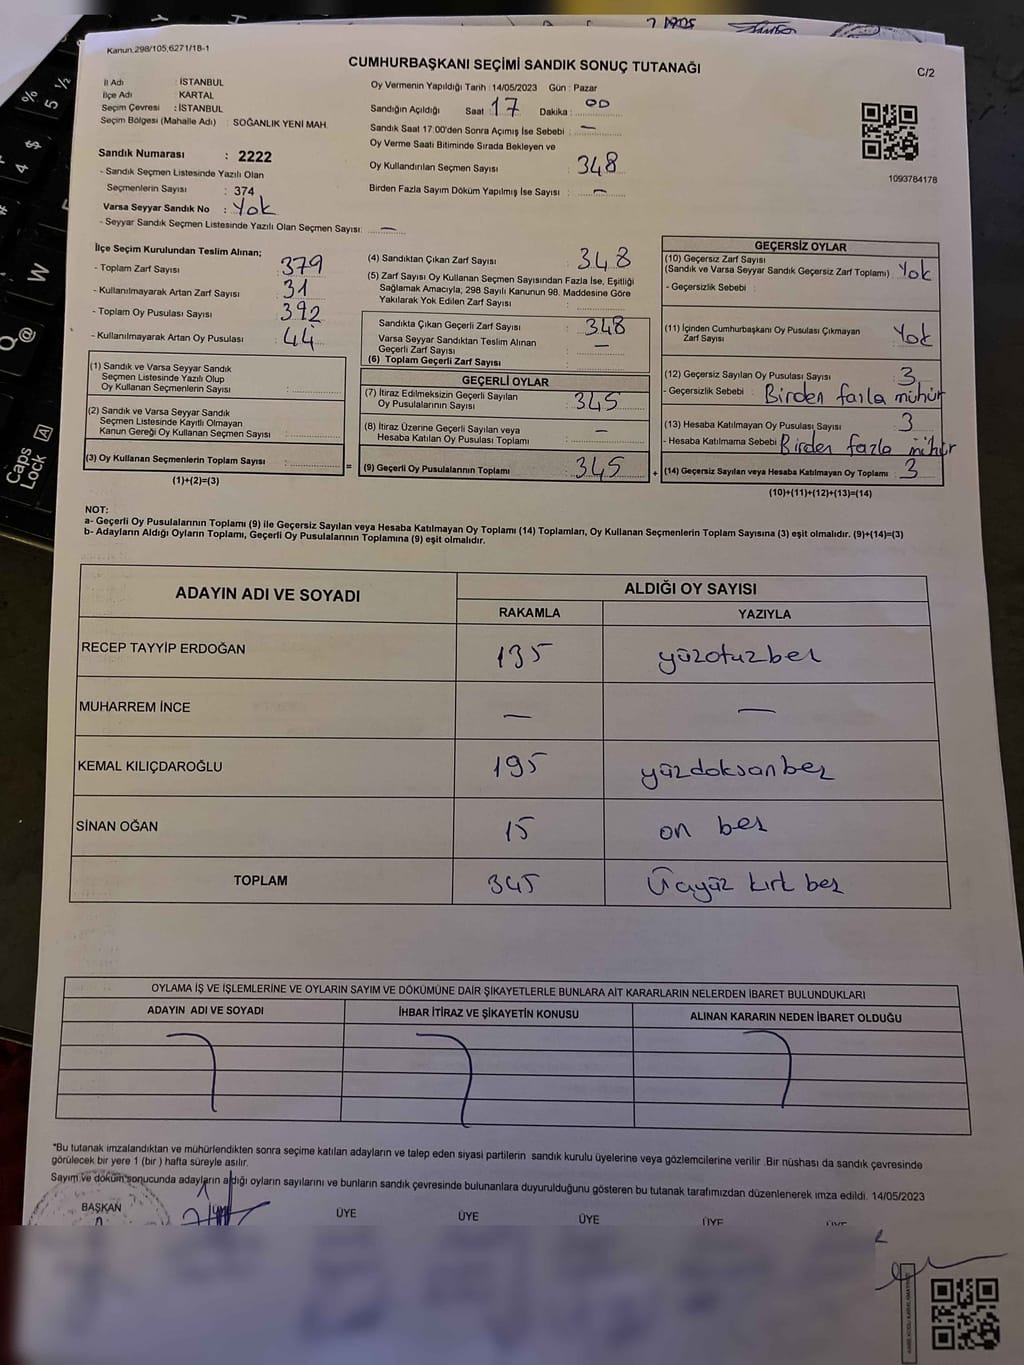 Kanun.298/105,6271/18-1
CUMHURBAŞKANI SEÇİMİ SANDIK SONUÇ TUTANAĞI
C/2
İl Adı : İSTANBUL
İlçe Adı : KARTAL
Seçim Çevresi : İSTANBUL
Seçim Bölgesi (Mahalle Adı) : SOĞANLIK YENİ MAH.
Oy Vermenin Yapıldığı Tarih : 14/05/2023 Gün : Pazar
Sandığın Açıldığı Saat 17 Dakika : 00
Sandık Saat 17.00'den Sonra Açımış İse Sebebi : —
Oy Verme Saati Bitiminde Sırada Bekleyen ve
Oy Kullandırılan Seçmen Sayısı : 348
Birden Fazla Sayım Döküm Yapılmış İse Sayısı : —
1093784178
Sandık Numarası : 2222
- Sandık Seçmen Listesinde Yazılı Olan
Seçmenlerin Sayısı : 374
Varsa Seyyar Sandık No : Yok
- Seyyar Sandık Seçmen Listesinde Yazılı Olan Seçmen Sayısı: —
İlçe Seçim Kurulundan Teslim Alınan;
- Toplam Zarf Sayısı : 379
- Kullanılmayarak Artan Zarf Sayısı : 31
- Toplam Oy Pusulası Sayısı : 392
- Kullanılmayarak Artan Oy Pusulası : 44
(1) Sandık ve Varsa Seyyar Sandık
Seçmen Listesinde Yazılı Olup
Oy Kullanan Seçmenlerin Sayısı :
(2) Sandık ve Varsa Seyyar Sandık
Seçmen Listesinde Kayıtlı Olmayan
Kanun Gereği Oy Kullanan Seçmen Sayısı :
(3) Oy Kullanan Seçmenlerin Toplam Sayısı :
(1)+(2)=(3)
(4) Sandıktan Çıkan Zarf Sayısı : 348
(5) Zarf Sayısı Oy Kullanan Seçmen Sayısından Fazla İse, Eşitliği
Sağlamak Amacıyla, 298 Sayılı Kanunun 98. Maddesine Göre
Yakılarak Yok Edilen Zarf Sayısı :
Sandıkta Çıkan Geçerli Zarf Sayısı : 348
Varsa Seyyar Sandıktan Teslim Alınan
Geçerli Zarf Sayısı : —
(6) Toplam Geçerli Zarf Sayısı :
GEÇERLİ OYLAR
(7) İtiraz Edilmeksizin Geçerli Sayılan
Oy Pusulalarının Sayısı : 345
(8) İtiraz Üzerine Geçerli Sayılan veya
Hesaba Katılan Oy Pusulası Toplamı : —
= (9) Geçerli Oy Pusulalarının Toplamı : 345 +
GEÇERSİZ OYLAR
(10) Geçersiz Zarf Sayısı
(Sandık ve Varsa Seyyar Sandık Geçersiz Zarf Toplamı) : Yok
- Geçersizlik Sebebi :
(11) İçinden Cumhurbaşkanı Oy Pusulası Çıkmayan
Zarf Sayısı : Yok
(12) Geçersiz Sayılan Oy Pusulası Sayısı : 3
- Geçersizlik Sebebi : Birden fazla mühür
(13) Hesaba Katılmayan Oy Pusulası Sayısı : 3
- Hesaba Katılmama Sebebi : Birden fazla mühür
(14) Geçersiz Sayılan veya Hesaba Katılmayan Oy Toplamı : 3
(10)+(11)+(12)+(13)=(14)
NOT:
a- Geçerli Oy Pusulalarının Toplamı (9) ile Geçersiz Sayılan veya Hesaba Katılmayan Oy Toplamı (14) Toplamları, Oy Kullanan Seçmenlerin Toplam Sayısına (3) eşit olmalıdır. (9)+(14)=(3)
b- Adayların Aldığı Oyların Toplamı, Geçerli Oy Pusulalarının Toplamına (9) eşit olmalıdır.
ADAYIN ADI VE SOYADI
ALDIĞI OY SAYISI
RAKAMLA YAZIYLA
RECEP TAYYİP ERDOĞAN 135 yüzotuzbeş
MUHARREM İNCE — —
KEMAL KILIÇDAROĞLU 195 yüzdoksanbeş
SİNAN OĞAN 15 on beş
TOPLAM 345 Üçyüz kırk beş
OYLAMA İŞ VE İŞLEMLERİNE VE OYLARIN SAYIM VE DÖKÜMÜNE DAİR ŞİKAYETLERLE BUNLARA AİT KARARLARIN NELERDEN İBARET BULUNDUKLARI
ADAYIN ADI VE SOYADI İHBAR İTİRAZ VE ŞİKAYETİN KONUSU ALINAN KARARIN NEDEN İBARET OLDUĞU
*Bu tutanak imzalandıktan ve mühürlendikten sonra seçime katılan adayların ve talep eden siyasi partilerin sandık kurulu üyelerine veya gözlemcilerine verilir .Bir nüshası da sandık çevresinde
görülecek bir yere 1 (bir ) hafta süreyle asılır.
Sayım ve döküm sonucunda adayların aldığı oyların sayılarını ve bunların sandık çevresinde bulunanlara duyurulduğunu gösteren bu tutanak tarafımızdan düzenlenerek imza edildi. 14/05/2023
BAŞKAN ÜYE ÜYE ÜYE ÜYE ÜYE
% 5 ½
4 $
W
Q @
Caps Lock A